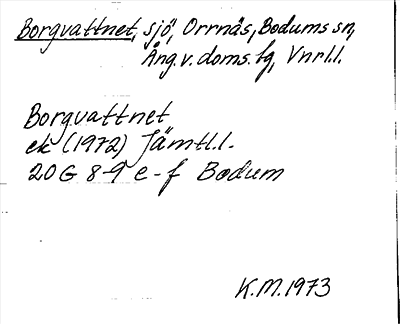 Borgvattnet, sjö, Orrnäs, Bodums sn,
Ång. v. doms. fg, Vnrl.l.
Borgvattnet
ek (1972) Jämtl.l.
20G 8-9 e-f Bodum
K.M.1973